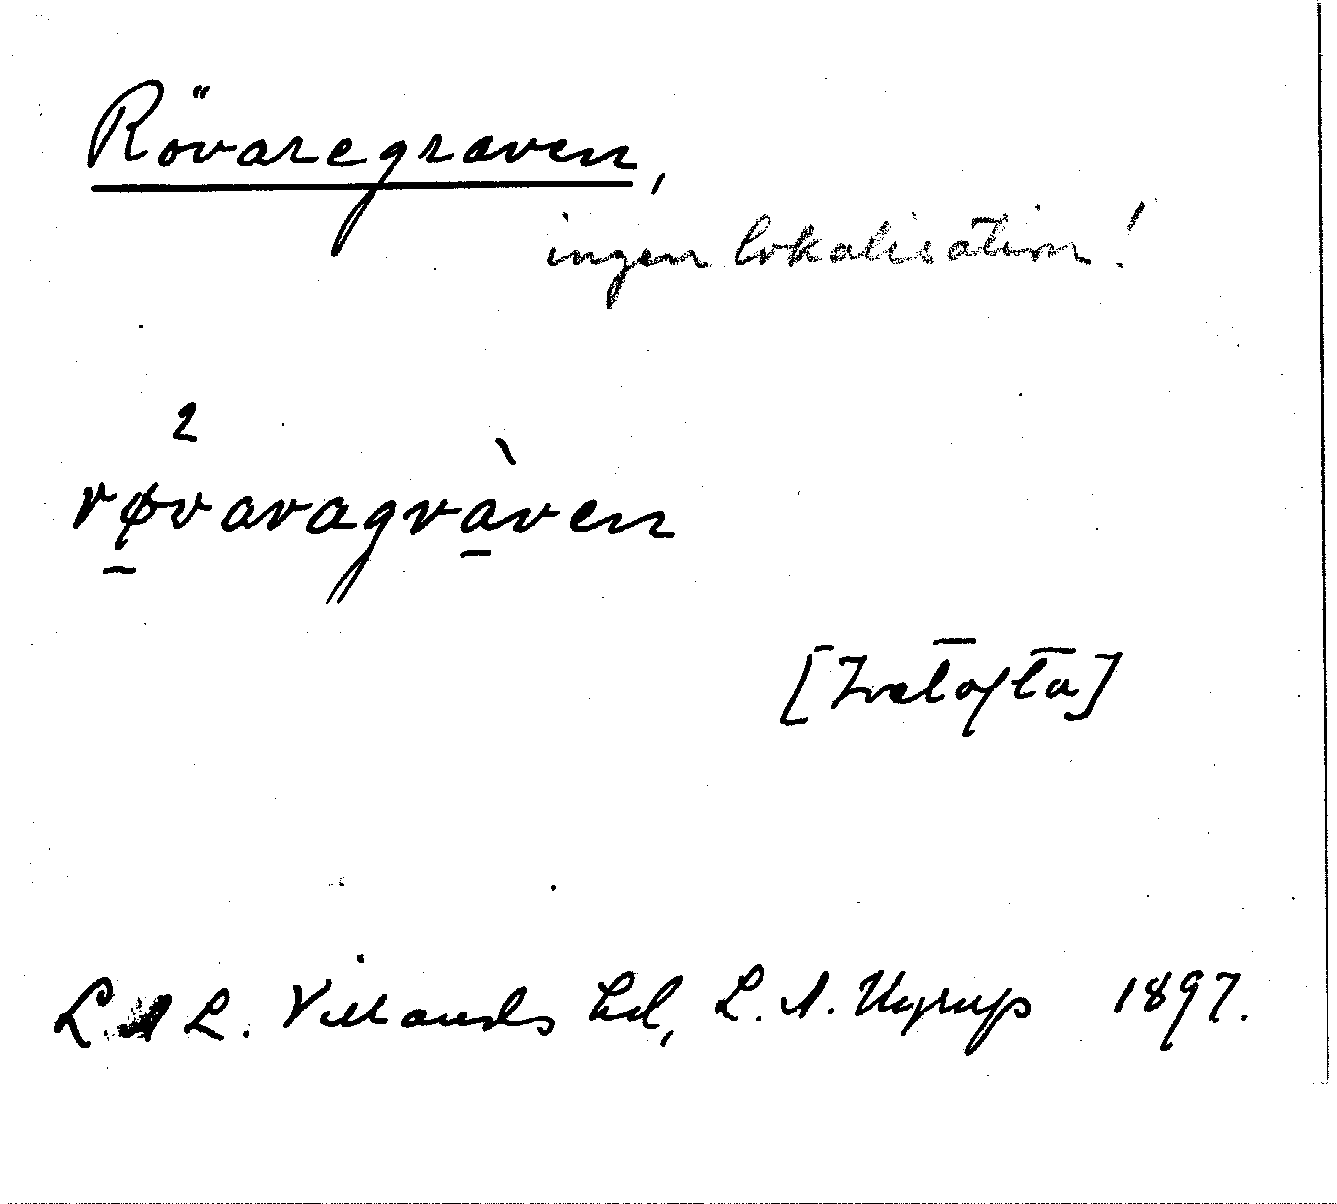 Rövaregraven,
ingen lokalisation!
2
røvaragràven
[Ivetofta]
L. A L. Villands hd, L. A. Ugrup 1897.